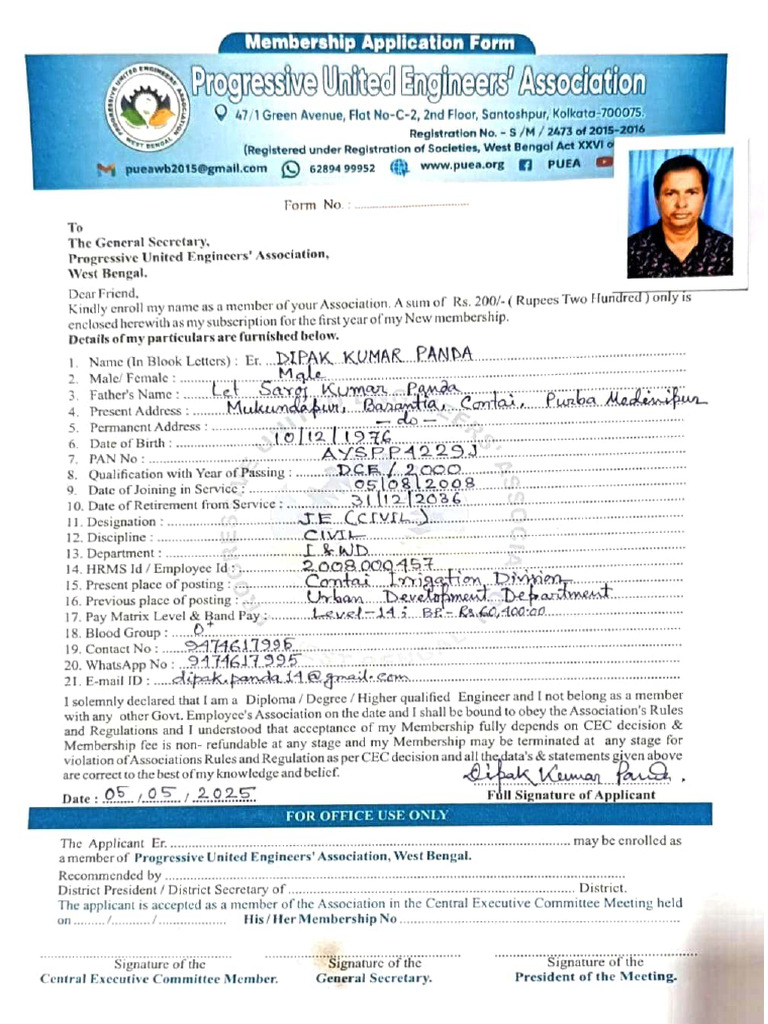 Membership Application Form
Progressive United Engineers' Association
47/1 Green Avenue, Flat No-C-2, 2nd Floor, Santoshpur, Kolkata-700075.
Registration No. - S /M / 2473 of 2015-2016
(Registered under Registration of Societies, West Bengal Act XXVI o
pueawb2015@gmail.com 62894 99952 www.puea.org PUEA
PROGRESSIVE UNITED ENGINEERS' ASSOCIATION
WEST BENGAL
Form No. :
To
The General Secretary,
Progressive United Engineers' Association,
West Bengal.
Dear Friend,
Kindly enroll my name as a member of your Association. A sum of Rs. 200/- ( Rupees Two Hundred ) only is
enclosed herewith as my subscription for the first year of my New membership.
Details of my particulars are furnished below.
1. Name (In Blook Letters) : Er. DIPAK KUMAR PANDA
2. Male/ Female : Male
3. Father's Name : Let Saroj Kumar Panda
4. Present Address : Mukundapur, Basantia, Contai, Purba Medinipur
5. Permanent Address : - do -
6. Date of Birth : 10/12/1976
7. PAN No : AYSPP4229J
8. Qualification with Year of Passing : DCE / 2000
9. Date of Joining in Service : 05/08/2008
10. Date of Retirement from Service : 31/12/2036
11. Designation : J.E (CIVIL)
12. Discipline : CIVIL
13. Department : I & WD
14. HRMS Id / Employee Id : 2008000457
15. Present place of posting : Contai Irrigation Division
16. Previous place of posting : Urban Development Department
17. Pay Matrix Level & Band Pay : Level-14; BP- Rs.60,400.00
18. Blood Group : O+
19. Contact No : 9474617995
20. WhatsApp No : 9474617995
21. E-mail ID : dipak.panda14@gmail.com
I solemnly declared that I am a Diploma / Degree / Higher qualified Engineer and I not belong as a member
with any other Govt. Employee's Association on the date and I shall be bound to obey the Association's Rules
and Regulations and I understood that acceptance of my Membership fully depends on CEC decision &
Membership fee is non- refundable at any stage and my Membership may be terminated at any stage for
violation of Associations Rules and Regulation as per CEC decision and all the data's & statements given above
are correct to the best of my knowledge and belief. Dipak Kumar Panda.
Date : 05 / 05 / 2025 Full Signature of Applicant
FOR OFFICE USE ONLY
The Applicant Er. may be enrolled as
a member of Progressive United Engineers' Association, West Bengal.
Recommended by
District President / District Secretary of District.
The applicant is accepted as a member of the Association in the Central Executive Committee Meeting held
on ........./............/.............. His / Her Membership No
Signature of the Signature of the Signature of the
Central Executive Committee Member. General Secretary. President of the Meeting.